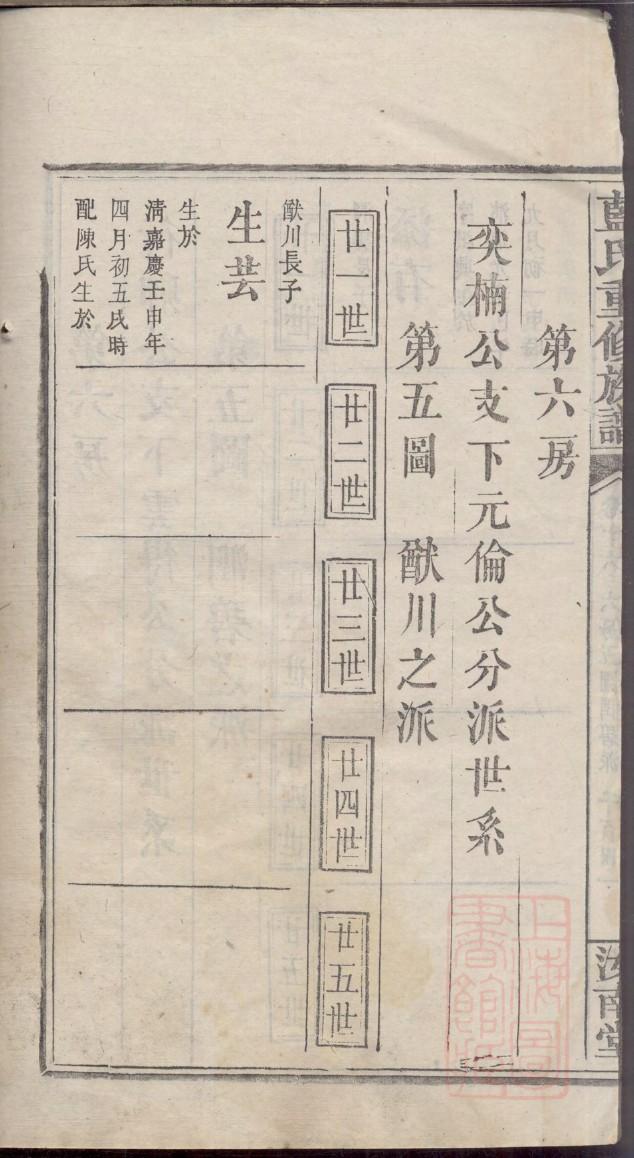 藍氏重修族譜
汝南堂
第六房
奕楠公支下元倫公分派世系
第五圖 猷川之派
廿一世
廿二世
廿三世
廿四世
廿五世
猷川長子
生芸
生於
清嘉慶壬申年
四月初五氏時
配陳氏生於
上海圖
書館藏